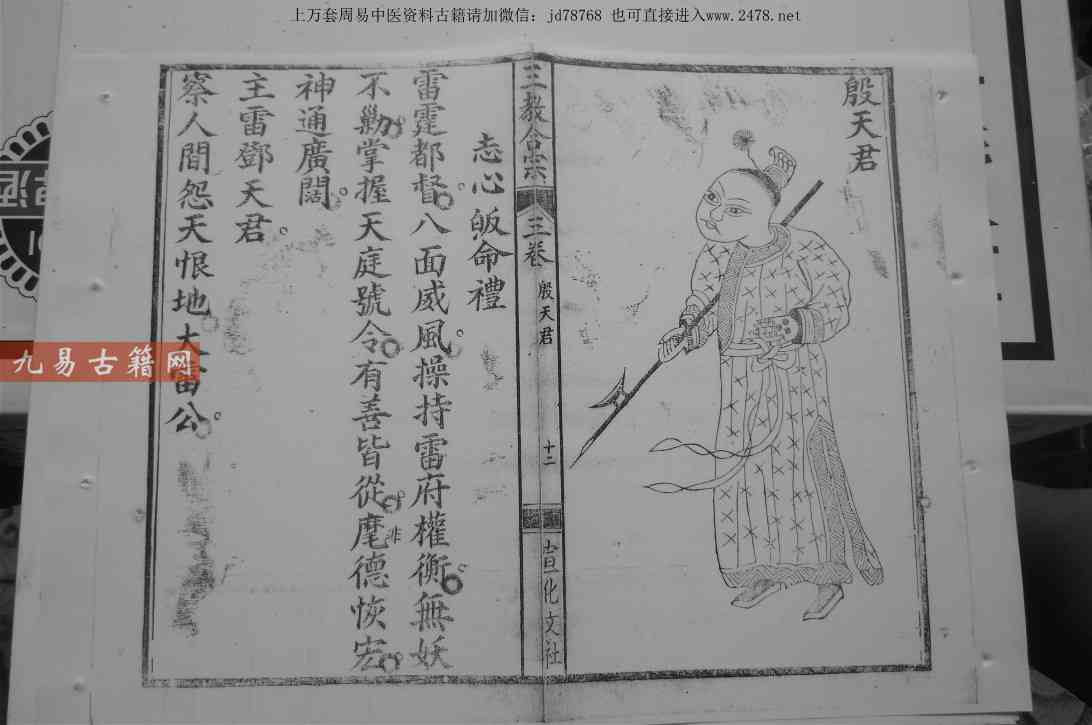 上万套周易中医资料古籍请加微信：jd78768 也可直接进入www.2478.net
殷天君
三教合宗
三卷
殷天君
十二
宣化文社
志心皈命禮
雷霆都督。八面威風。操持雷府權衡。無妖
不勦。掌握天庭號令。有善皆從。非麾德恢宏。
神通廣闊。
主雷鄧天君。
察人間怨天恨地大雷公。
九易古籍网